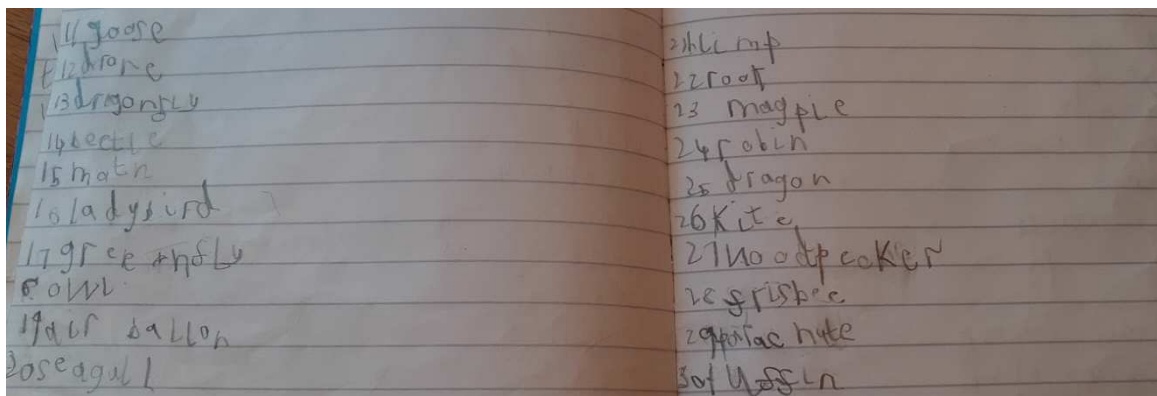 11 goose
12 drone
13 dragonfly
14 beetle
15 moth
16 ladybird
17 greenfly
owl
19 air ballon
20 seagull
21 blimp
22 root
23 magpie
24 robin
25 dragon
26 Kite
27 woodpecker
28 frisbee
29 parachute
30